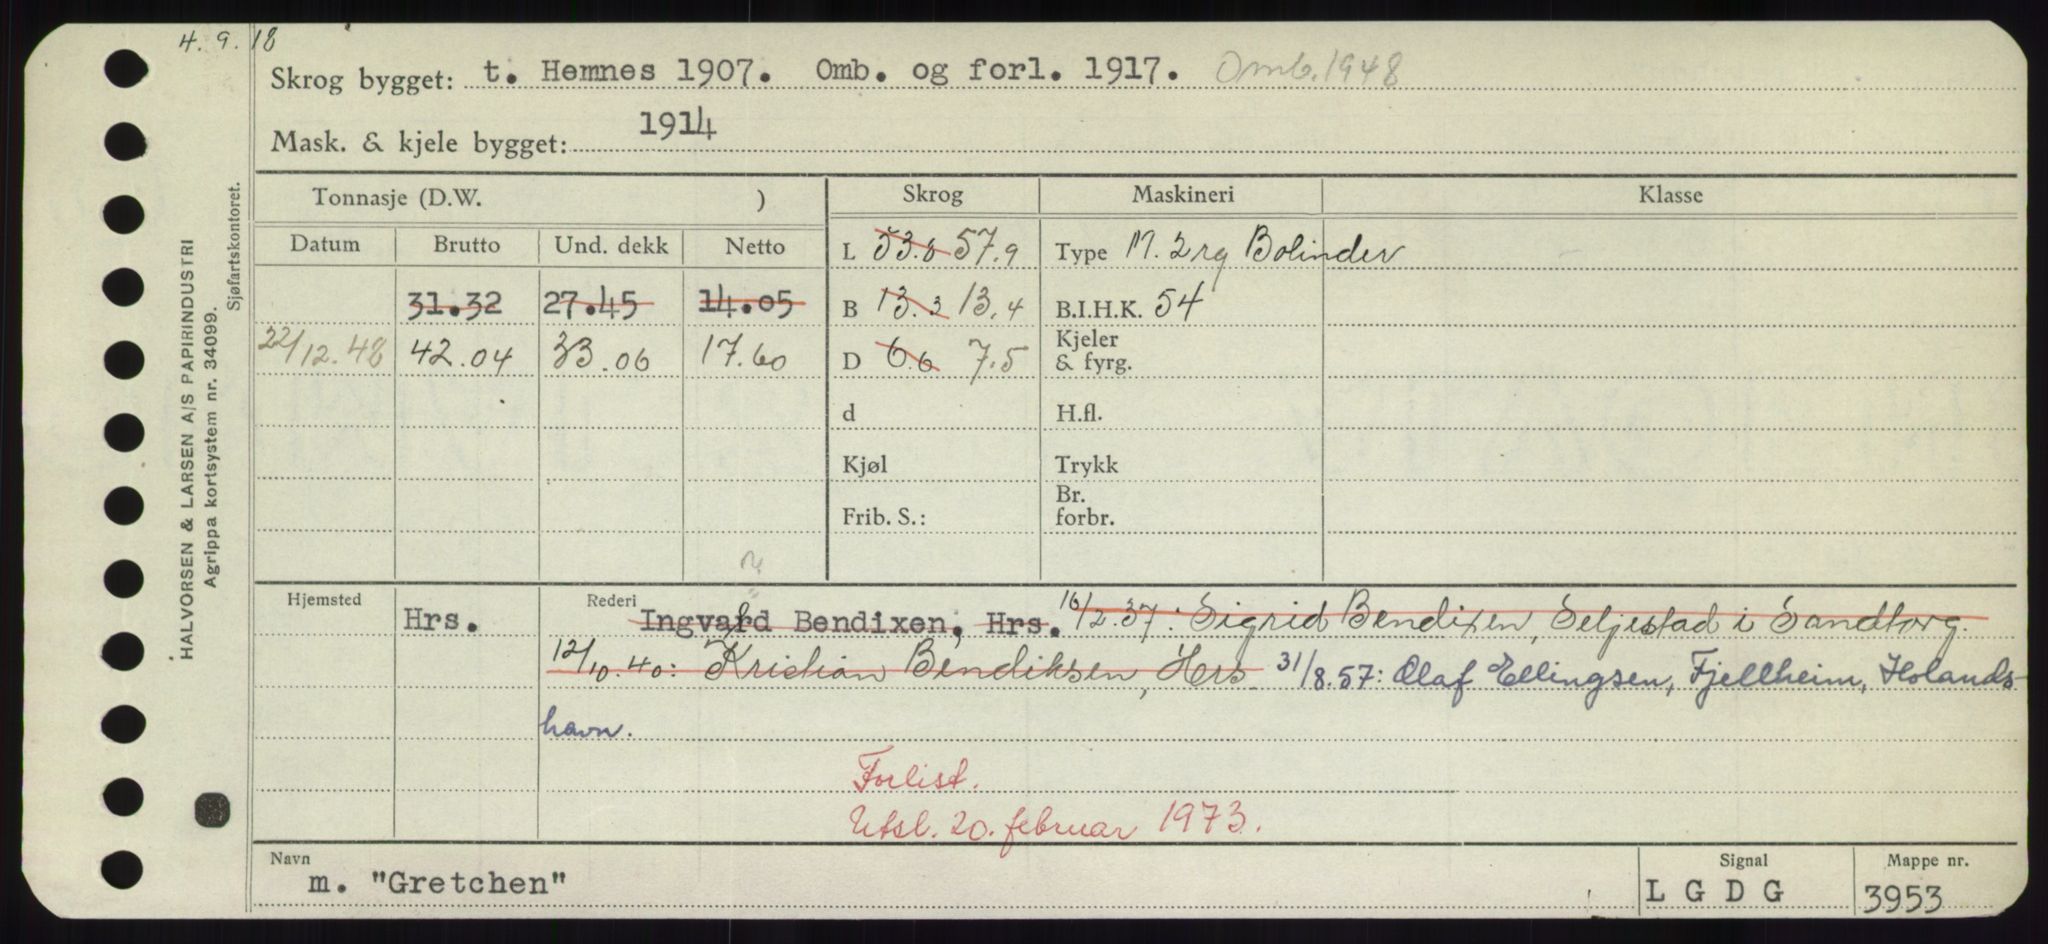 4. 9. 18
Skrog bygget: t. Hemnes 1907. Omb. og forl. 1917. Omb. 1948
Mask. & kjele bygget: 1914
Tonnasje (D.W. ) Skrog Maskineri Klasse
Datum Brutto Und. dekk Netto L 53.8 57.9 Type M. 2 rg Bolinder
31.32 27.45 14.05 B 13.3 13.4 B.I.H.K. 54
22/12.48 42.04 33.06 17.60 D 6.6 7.5 Kjeler & fyrg.
d H.fl.
Kjøl Trykk
Frib. S.: Br. forbr.
Hjemsted Hrs. Rederi Ingvard Bendixen, Hrs. 16/2.37: Sigrid Bendixen, Seljestad i Sandtorg.
12/10.40: Kristian Bendiksen, Hrs 31/8.57: Olaf Ellingsen, Fjellheim, Holands-
havn.
Forlist.
Utsl. 20. februar 1973.
Navn Signal Mappe nr.
m. "Gretchen" LGDG 3953
HALVORSEN & LARSEN A/S PAPIRINDUSTRI
Agrippa kortsystem nr. 34099.
Sjøfartskontoret.